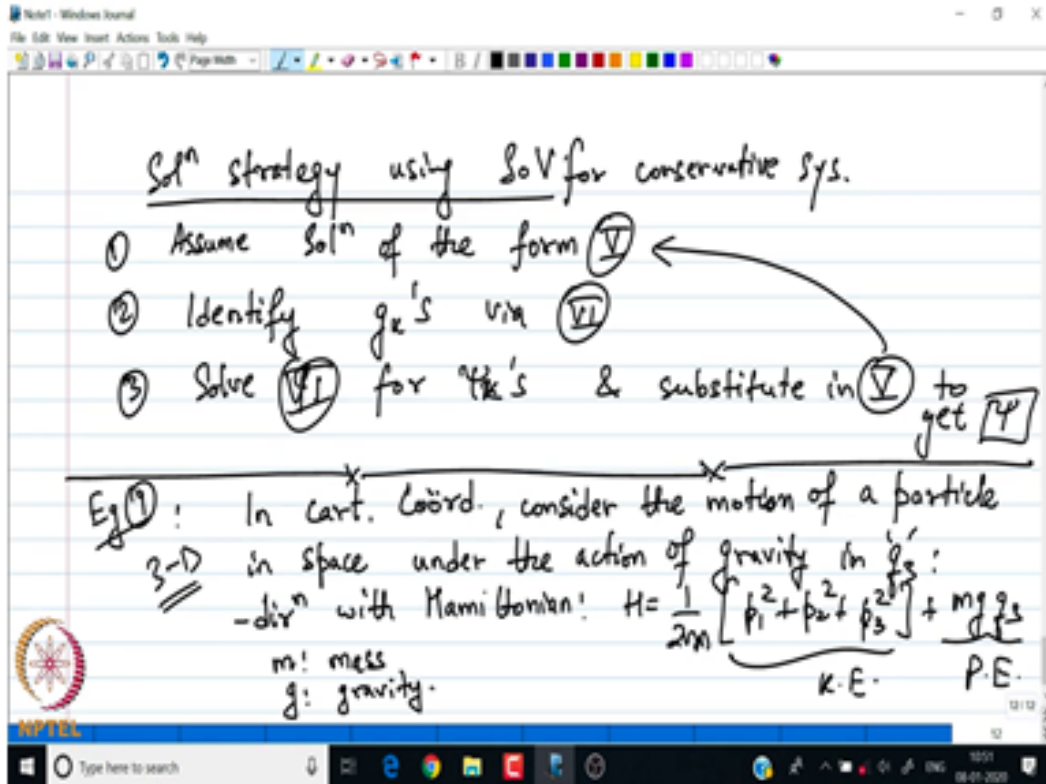 Note1 - Windows Journal
File Edit View Insert Actions Tools Help
Page Width
B I
Solⁿ strategy using SoV for conservative sys.
① Assume Solⁿ of the form Ⅴ
② Identify gₖ's via Ⅵ
③ Solve Ⅵ for Ψₖ's & substitute in Ⅴ to
get Ψ
Eg ①: In cart. Coörd., consider the motion of a particle
3-D in space under the action of gravity in 'q₃':
-dirⁿ with Hamiltonian: H = 1/2m [p₁² + p₂² + p₃²] + mg q₃
K.E. P.E.
m: mass
g: gravity.
NPTEL
12/12
12
Type here to search
ENG
10:51
08-01-2020